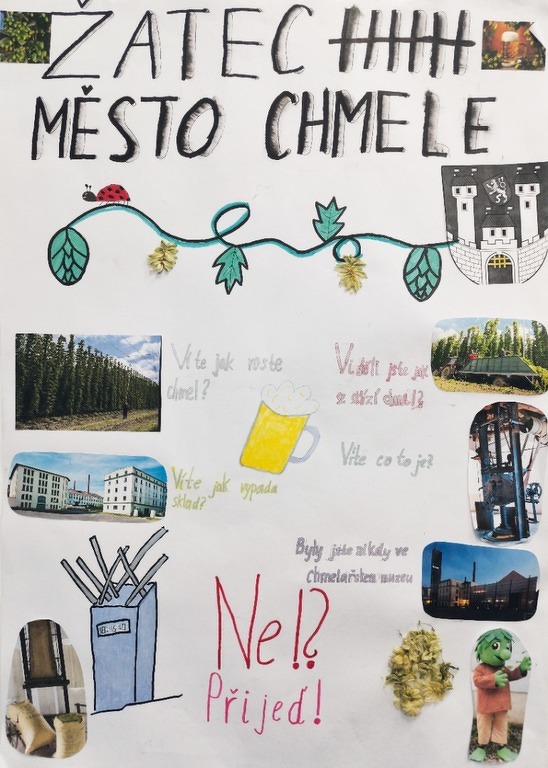 ŽATEC
MĚSTO CHMELE
Víte jak roste
chmel?
Viděli jste jak
se sklízí chmel!?
Víte co to je?
Víte jak vypadá
sklad?
Byly jste někdy ve
Chmelařském muzeu
Ne!?
Přijeď!